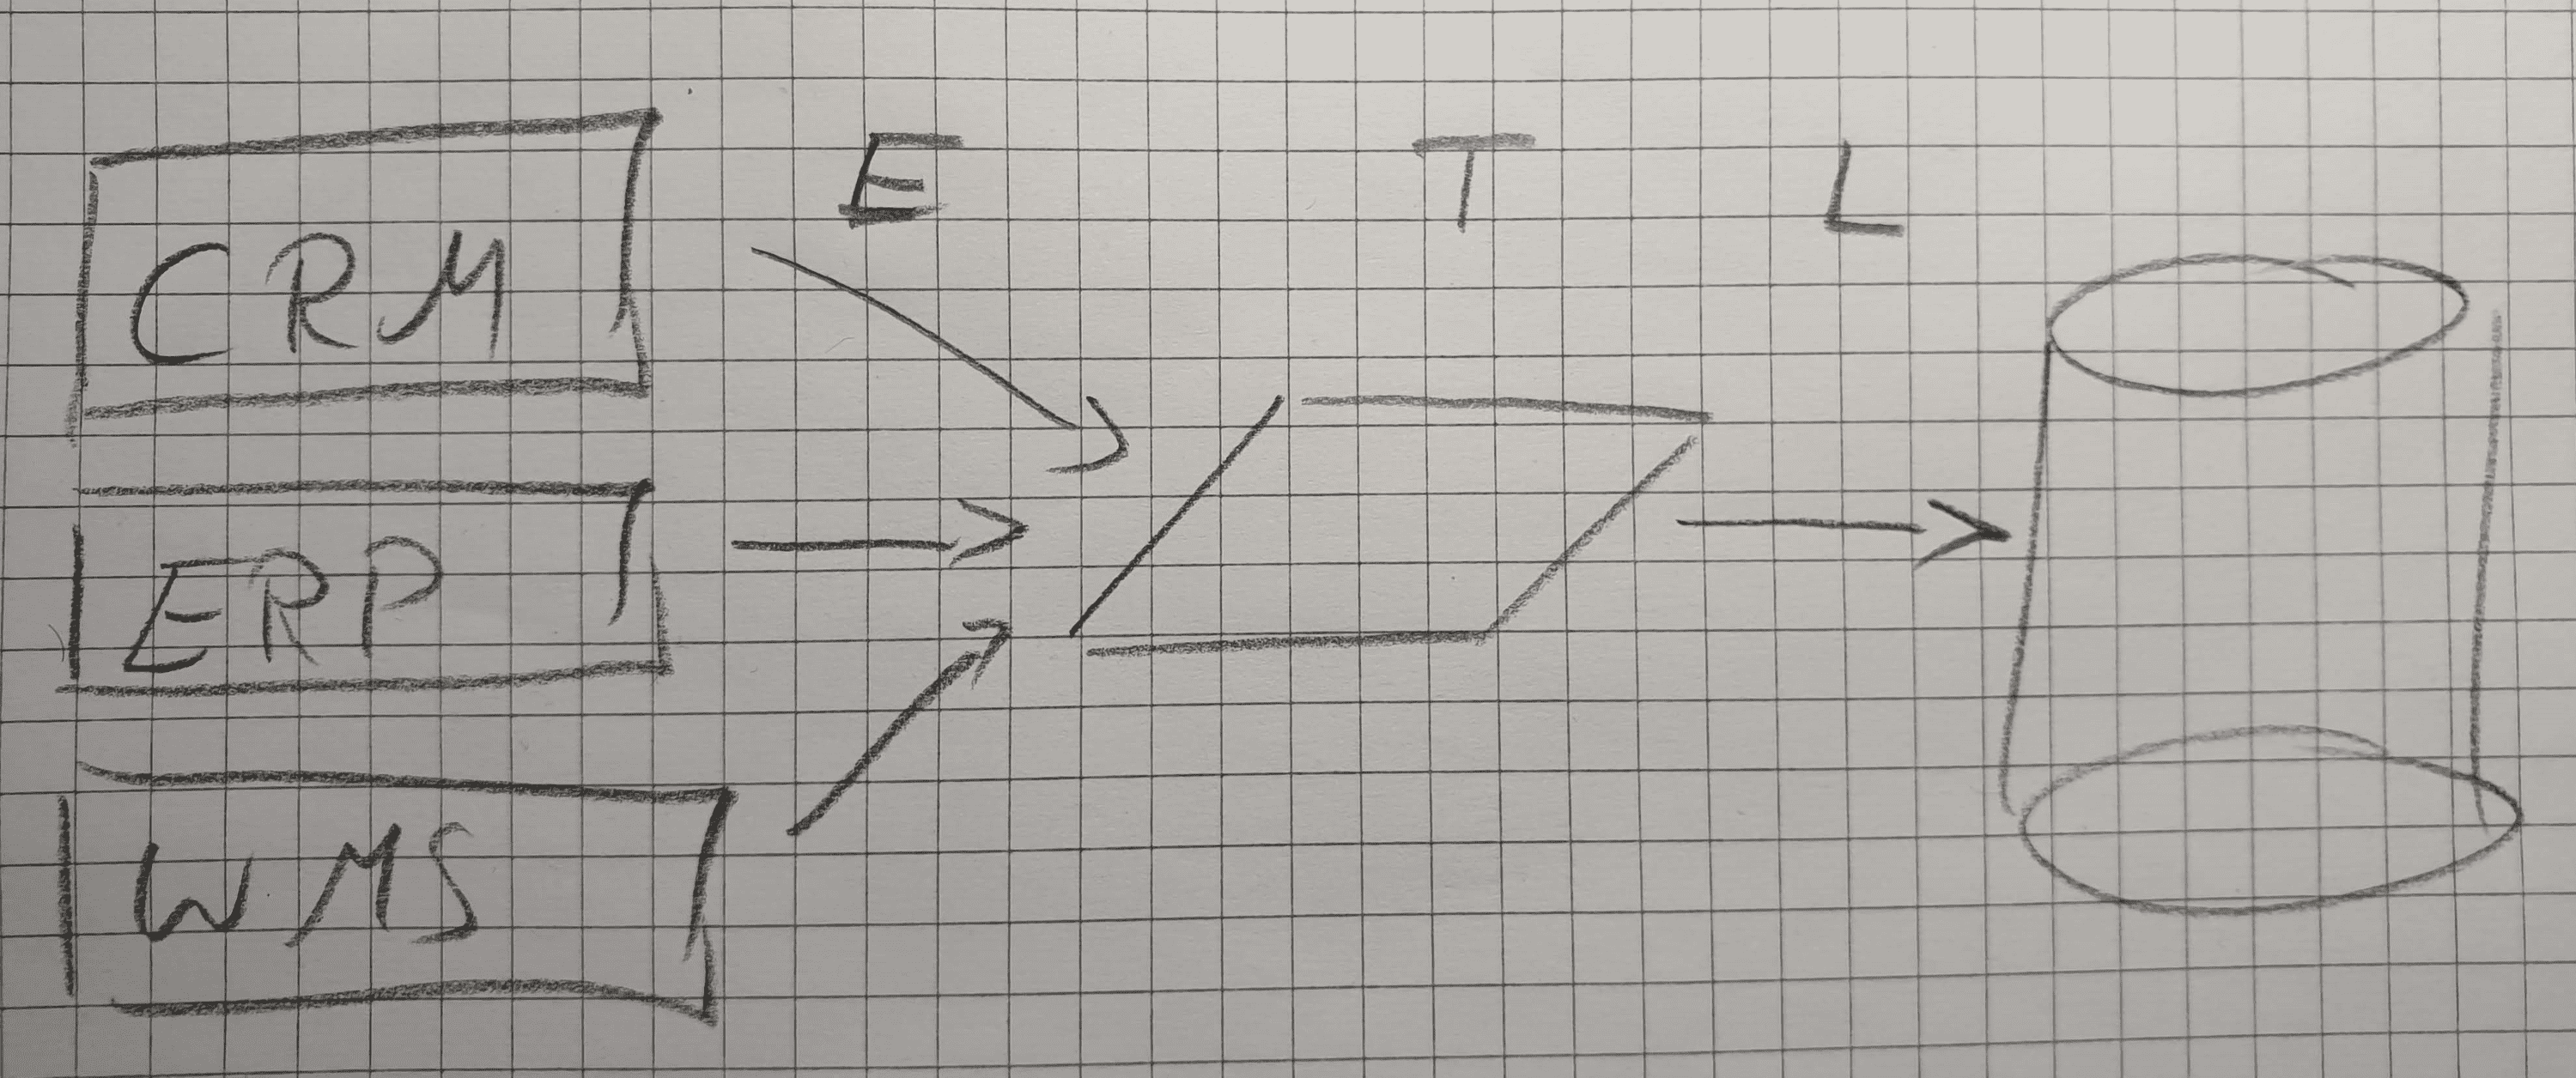 E T L
CRM
ERP
WMS